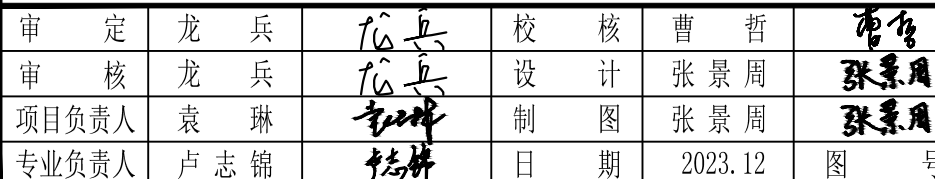 审 定 龙 兵 龙兵 校 核 曹 哲 曹哲
审 核 龙 兵 龙兵 设 计 张景周 张景周
项目负责人 袁 琳 袁琳 制 图 张景周 张景周
专业负责人 卢志锦 卢志锦 日 期 2023.12 图 号